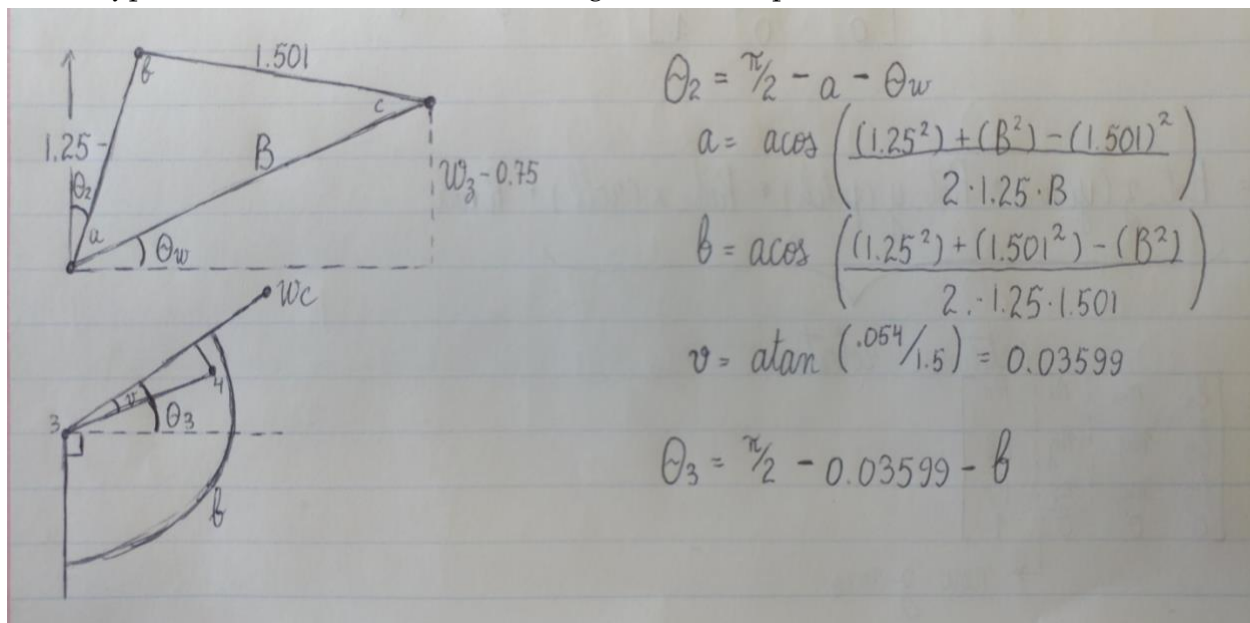 1.501
b
c
1.25
B
W_z - 0.75
θ_2
a
θ_w
Wc
4
v
3
θ_3
b
θ_2 = π/2 - a - θ_w
a = acos ( (1.25²) + (B²) - (1.501)² / 2·1.25·B )
b = acos ( (1.25²) + (1.501²) - (B²) / 2.·1.25·1.501 )
v = atan (.054/1.5) = 0.03599
θ_3 = π/2 - 0.03599 - b